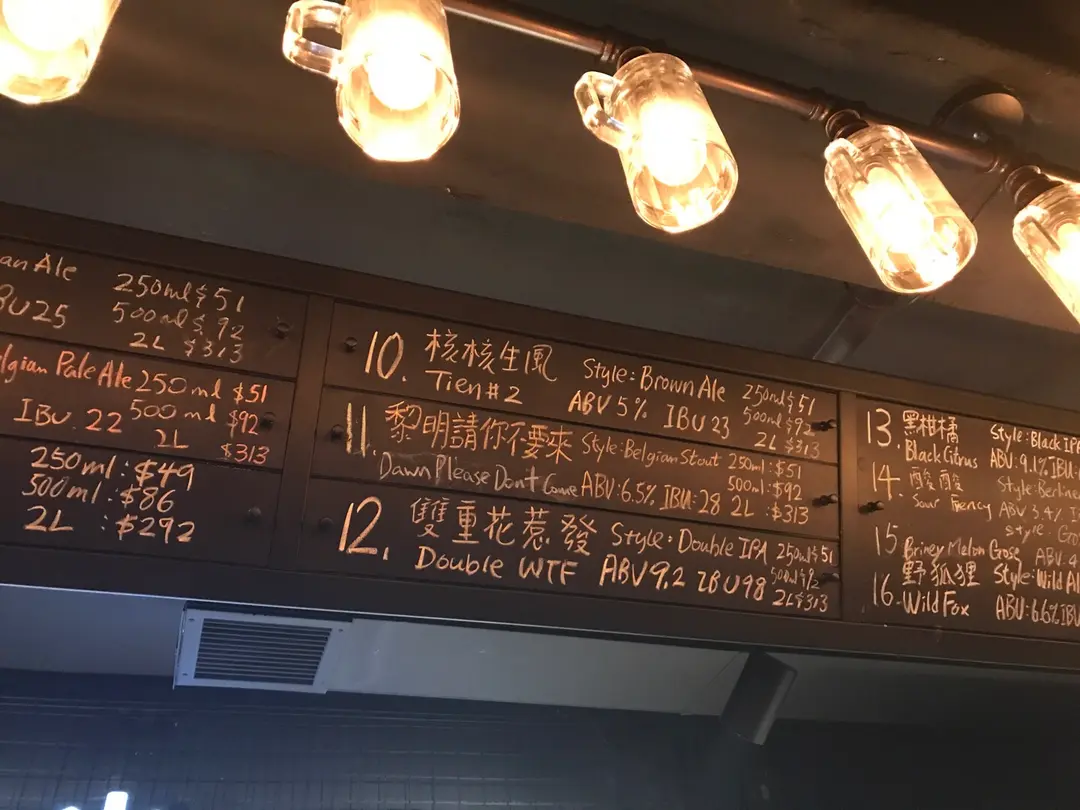 an Ale 250ml $51
BU25 500ml $92
2L $313
lgian Pale Ale 250ml $51
IBU. 22 500ml $92
2L $313
250ml:$49
500ml:$86
2L :$292
10. 核核生風 Style:Brown Ale 250ml $51
Tien#2 ABV 5% IBU 23 500ml $92
2L $313
11. 黎明請你不要來 Style:Belgian Stout 250ml:$51
Dawn Please Don't Come ABV:6.5% IBU:28 500ml:$92
2L :$313
12. 雙重花惹發 Style:Double IPA 250ml $51
Double WTF ABV9.2 IBU98 500ml $92
2L $313
13. 黑柑橘 Style:Black IPA
Black Citrus ABV:9.1% IBU:
14. 酸酸 Style:Berliner
Sour ABV 3.4%
15 Style:Go
Briney Melon Gose ABV 4
16. 野狐狸 Style:Wild Al
Wild Fox ABV:6.6% IBU